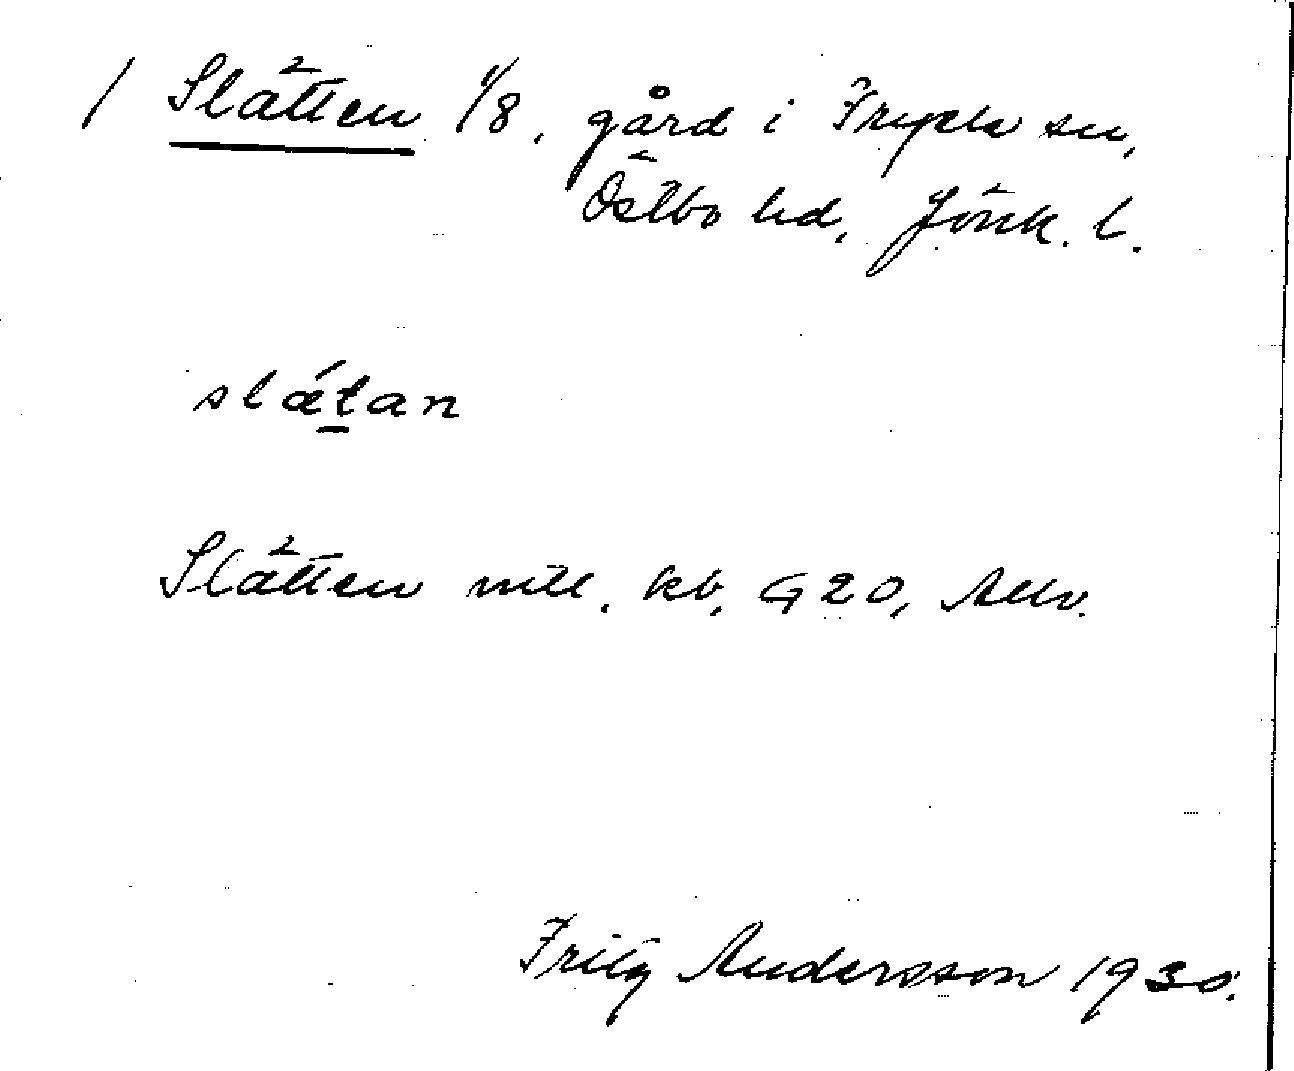 / Slätten 1/8, gård i Fryele sn,
Östbo hd, Jönk. l.
slǽtan
Slätten mtl. kb, G 20, Allv.
Fritz Andersson 1930.